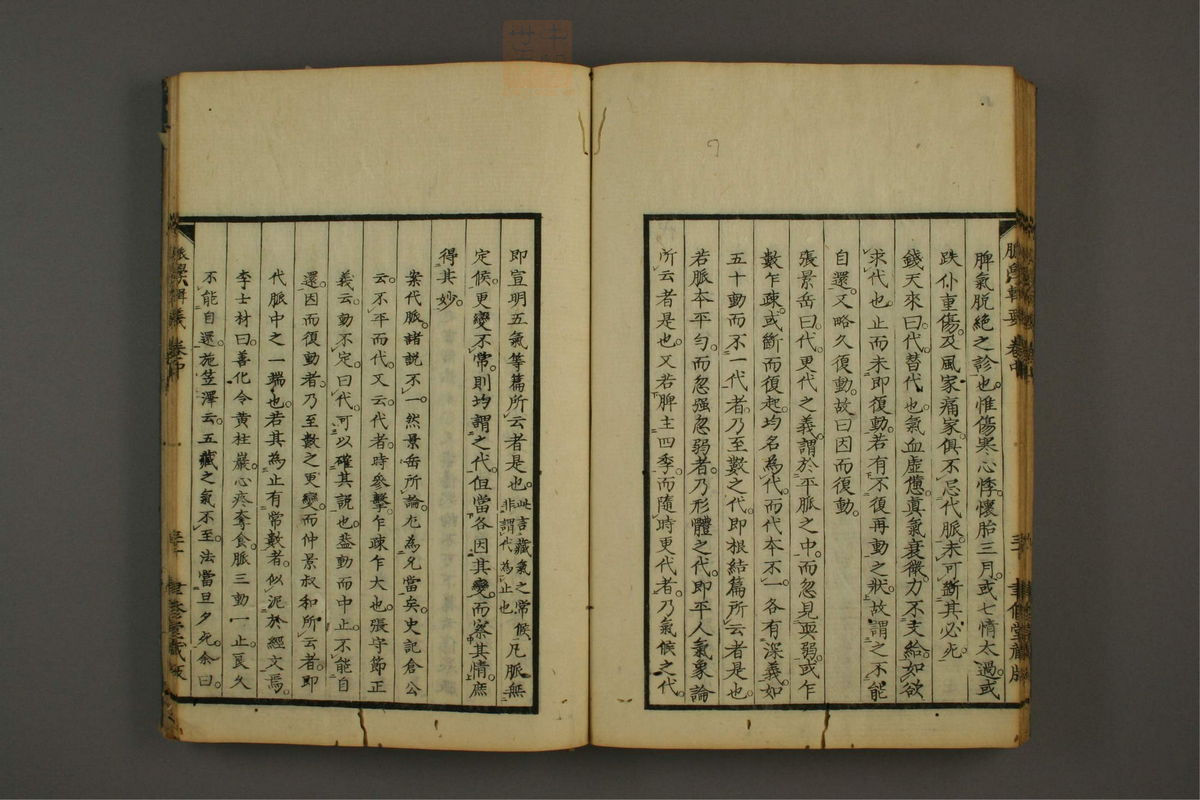 脾氣脱絶之診也。惟傷寒心悸。懷胎三月。或七情太過。或
跌仆重傷。及風家痛家。俱不忌代脈。未可斷其必死
錢天來曰。代替代也。氣血虛憊。眞氣衰微。力不支給。如欲
求代也。止而未即復動。若有不復再動之狀。故謂之不能
自還。又略久復動。故曰因而復動。
張景岳曰。代更代之義。謂於平脈之中。而忽見耎弱。或乍
數乍疎。或斷而復起。均名為代。而代本不一。各有深義。如
五十動而不一代者。乃至數之代。即根結篇所云者是也。
若脈本平勻。而忽强忽弱者。乃形體之代。即平人氣象論
所云者是也。又若脾主四季。而隨時更代者。乃氣候之代。
即宣明五氣等篇所云者是也。此言藏氣之常候。非謂代為止也凡脈無
定候。更變不常。則均謂之代。但當各因其變。而察其情。庶
得其妙。
案代脈。諸説不一。然景岳所論。尤為允當矣。史記倉公
云。不平而代。又云。代者。時參擊乍疎乍大也。張守節正
義云。動不定曰代。可以確其説也。葢動而中止。不能自
還。因而復動者。乃至數之更變。而仲景叔和所云者。即
代脈中之一端也。若其為止有常數者。似泥於經文焉。
李士材曰。善化令黄柱巖。心疼奪食。脈三動一止。良久
不能自還。施笠澤云。五藏之氣不至。法當旦夕死。余曰。
脈學輯要 卷中
聿修堂藏版